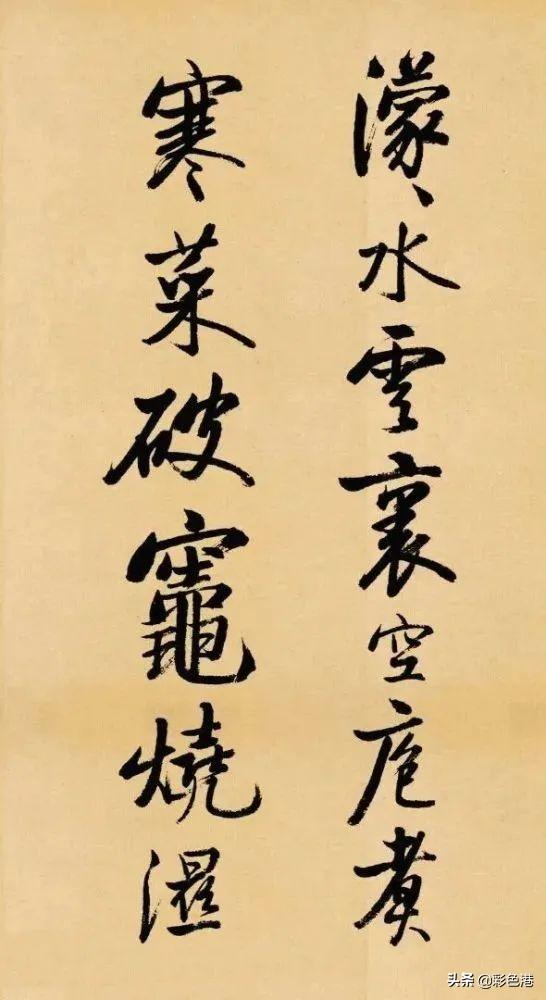 濛、水雲裏空庖煮
寒菜破竈燒濕
头条 @彩色港